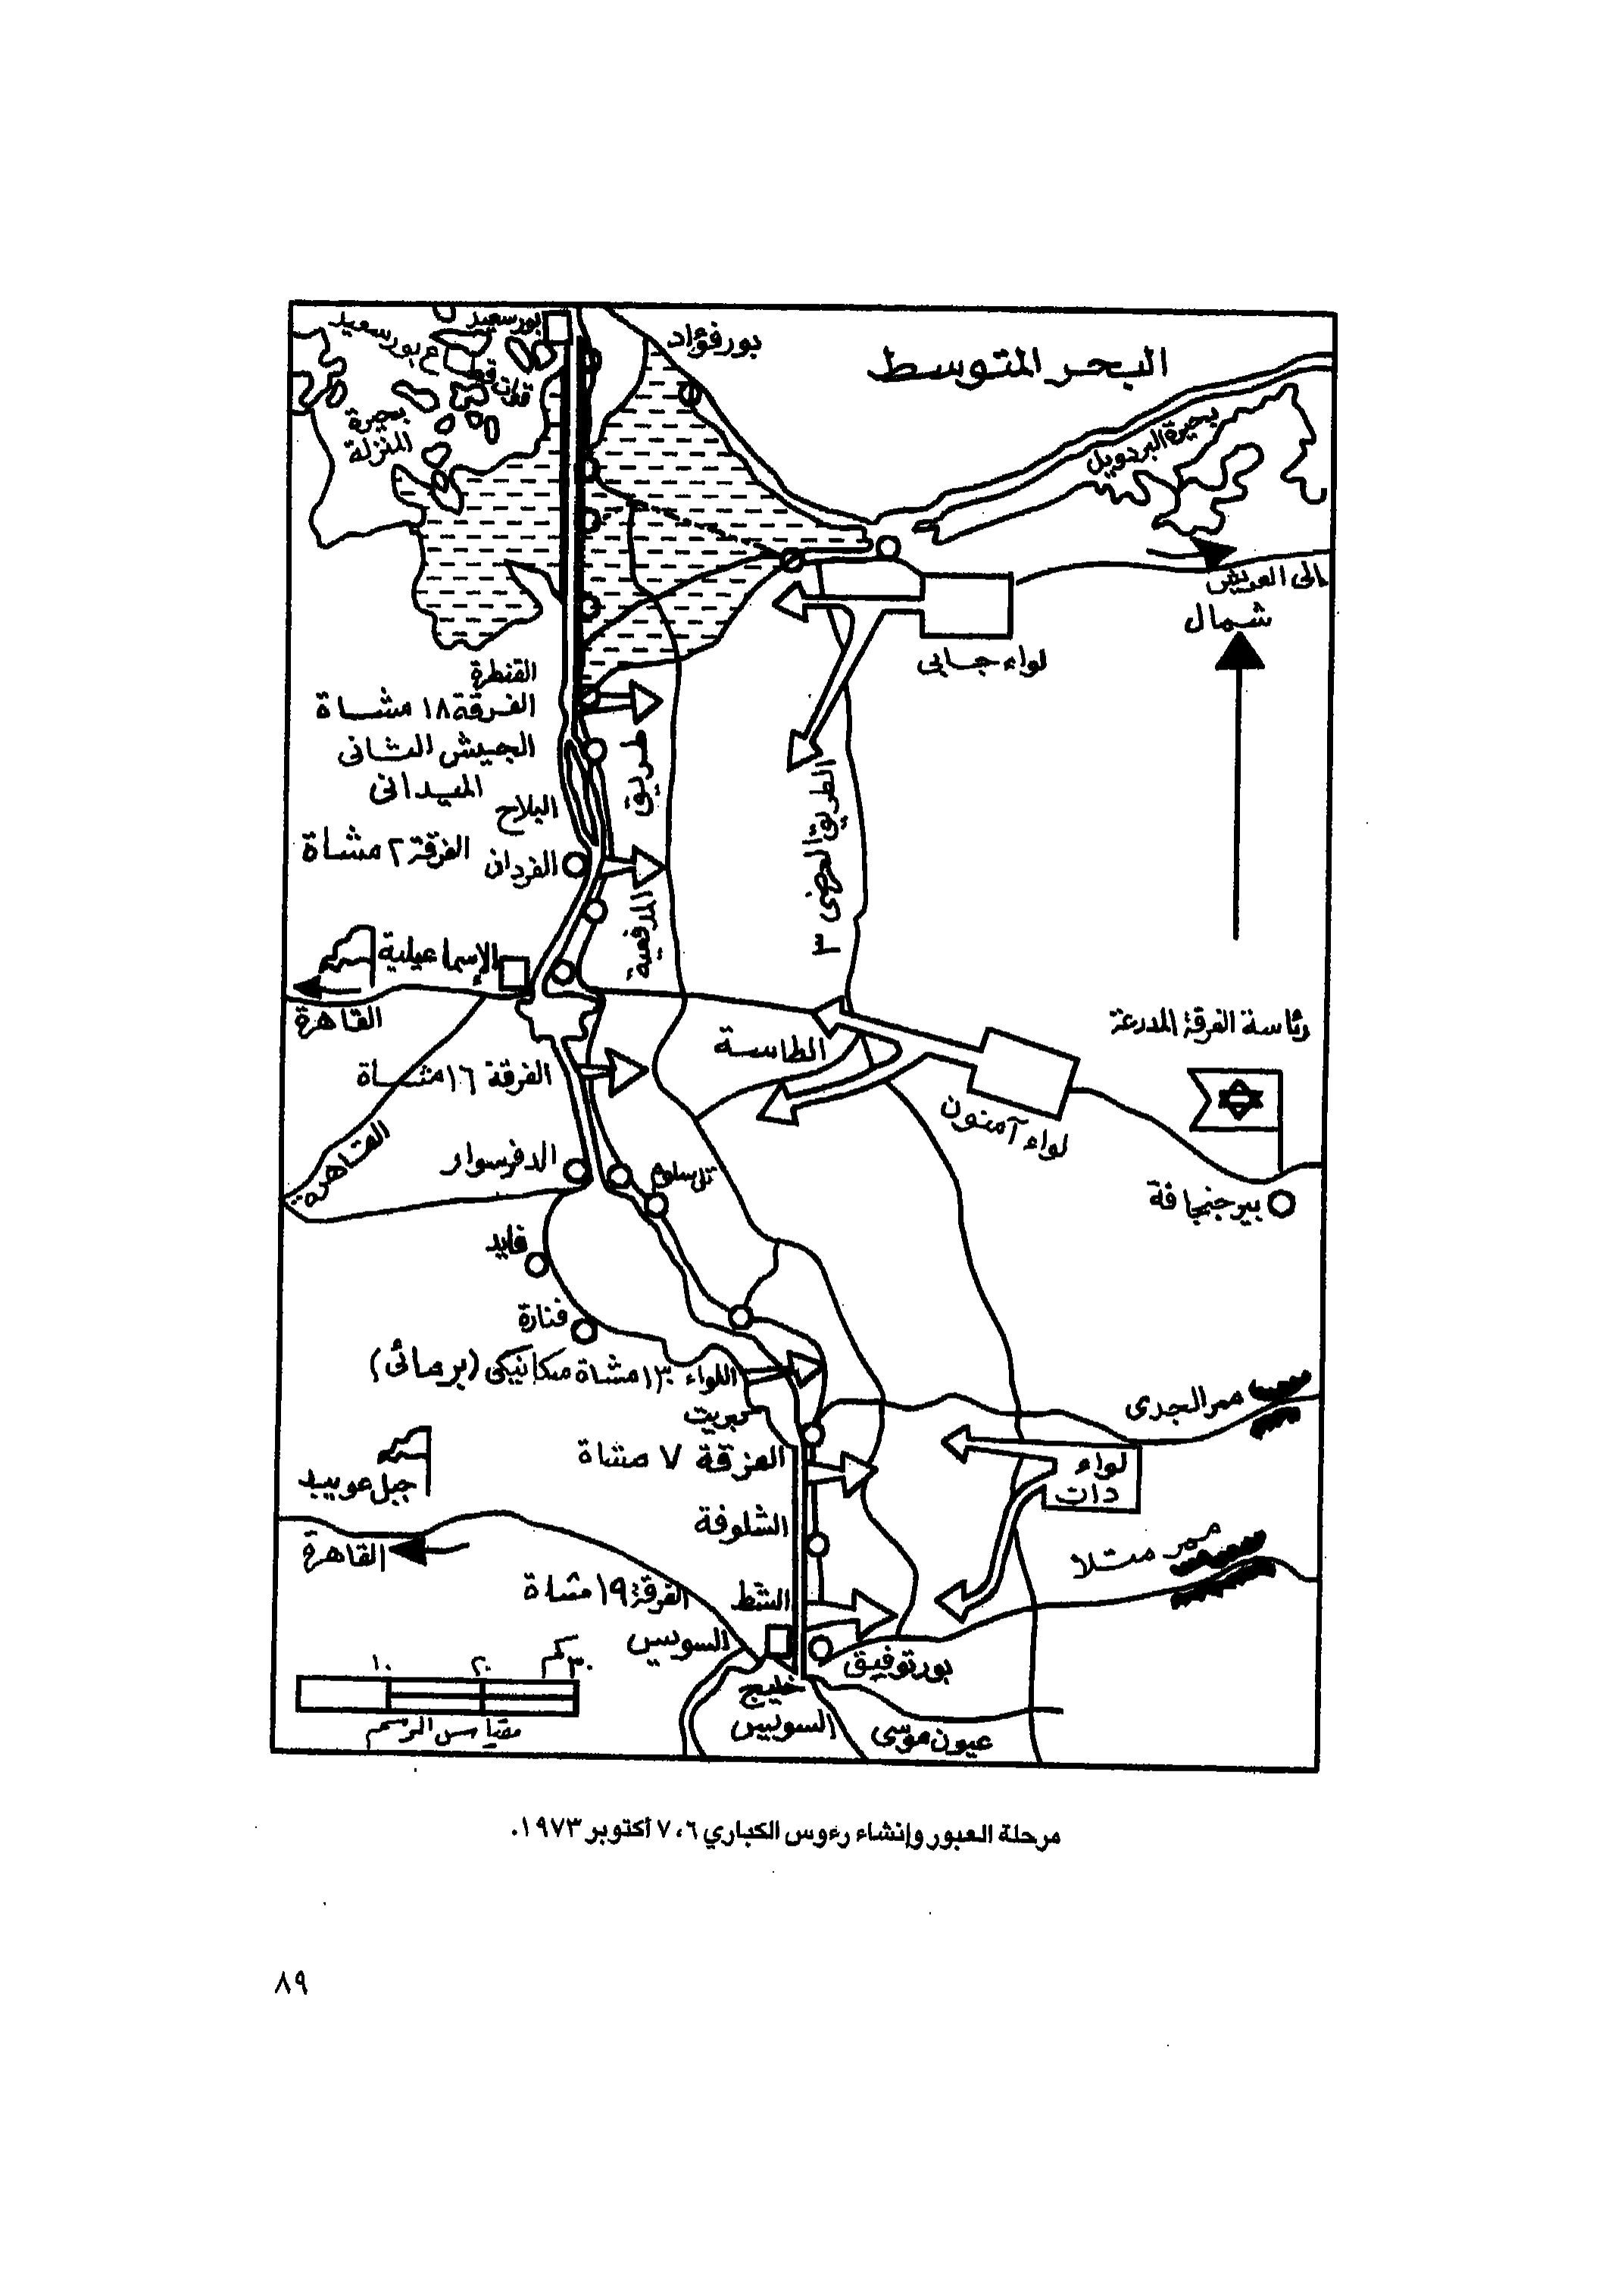 البحر المتوسط
بورسعيد
م بورسعيد
بورفؤاد
بحيرة
المنزلة
بحيرة البردويل
الى العريش
شمال
لواء جابى
القنطرة
الفرقة ١٨ مشاة
الجيش الثانى
الميدانى
البلاح
طريق
المدفعية
الطريق العرضى ٣
الفرقة ٢ مشاة
الفردان
الإسماعيلية
القاهرة
رئاسة الفرقة المدرعة
الطاسة
الفرقة ١٦ مشاة
لواء آمنون
القاهرة
الدفرسوار
تل سلام
بير جنجافة
فايد
فنارة
اللواء ١٣٠ مشاة ميكانيكى (برمائى)
ممر الجدى
كبريت
الفرقة ٧ مشاة
لواء
دان
جبل عويبد
الشلوفة
ممر متلا
القاهرة
الفرقة ١٩ مشاة
الشط
السويس
بورتوفيق
خليج
السويس
عيون موسى
١٠ ٢٠ ٣٠ كم
مقياس الرسم
مرحلة العبور وإنشاء رءوس الكباري ٦، ٧ أكتوبر ١٩٧٣.
٨٩